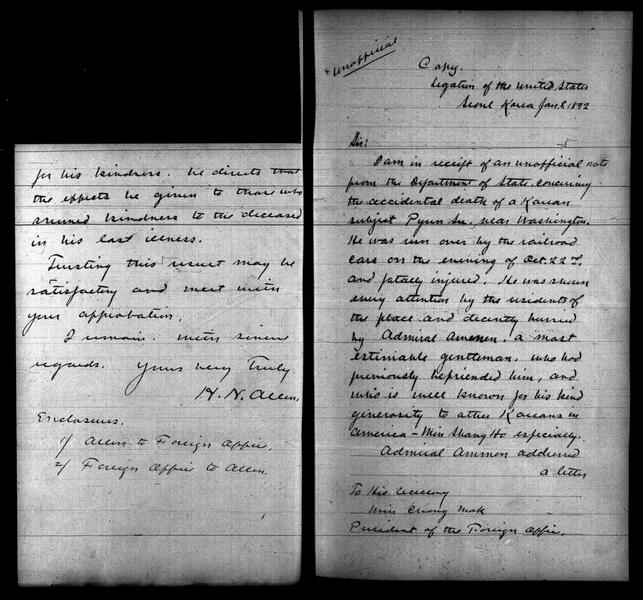 for his kindness. He directs that
the effects be given to those who
showed kindness to the deceased
in his last illness.
Trusting this result may be
satisfactory and meet with
your approbation,
I remain, with sincere
regards, Yours very Truly
H. N. Allen.
Enclosures.
1/ Allen to Foreign Office.
2/ Foreign Office to Allen.
Unofficial
Copy.
Legation of the United States
Seoul Korea Jan. 8. 1892
Sir:
I am in receipt of an unofficial note
from the Department of State, concerning
the accidental death of a Korean
subject Pyun Su, near Washington.
He was run over by the railroad
cars on the evening of Oct. 22nd,
and fatally injured. He was shown
every attention by the residents of
the place and decently buried
by Admiral Ammen, a most
estimable gentleman, who had
previously befriended him, and
who is well known for his kind
generosity to other Koreans in
America - Min Shang Ho especially.
Admiral Ammen addressed
a letter
To His Excellency
Min Chong Mok
President of the Foreign Office.